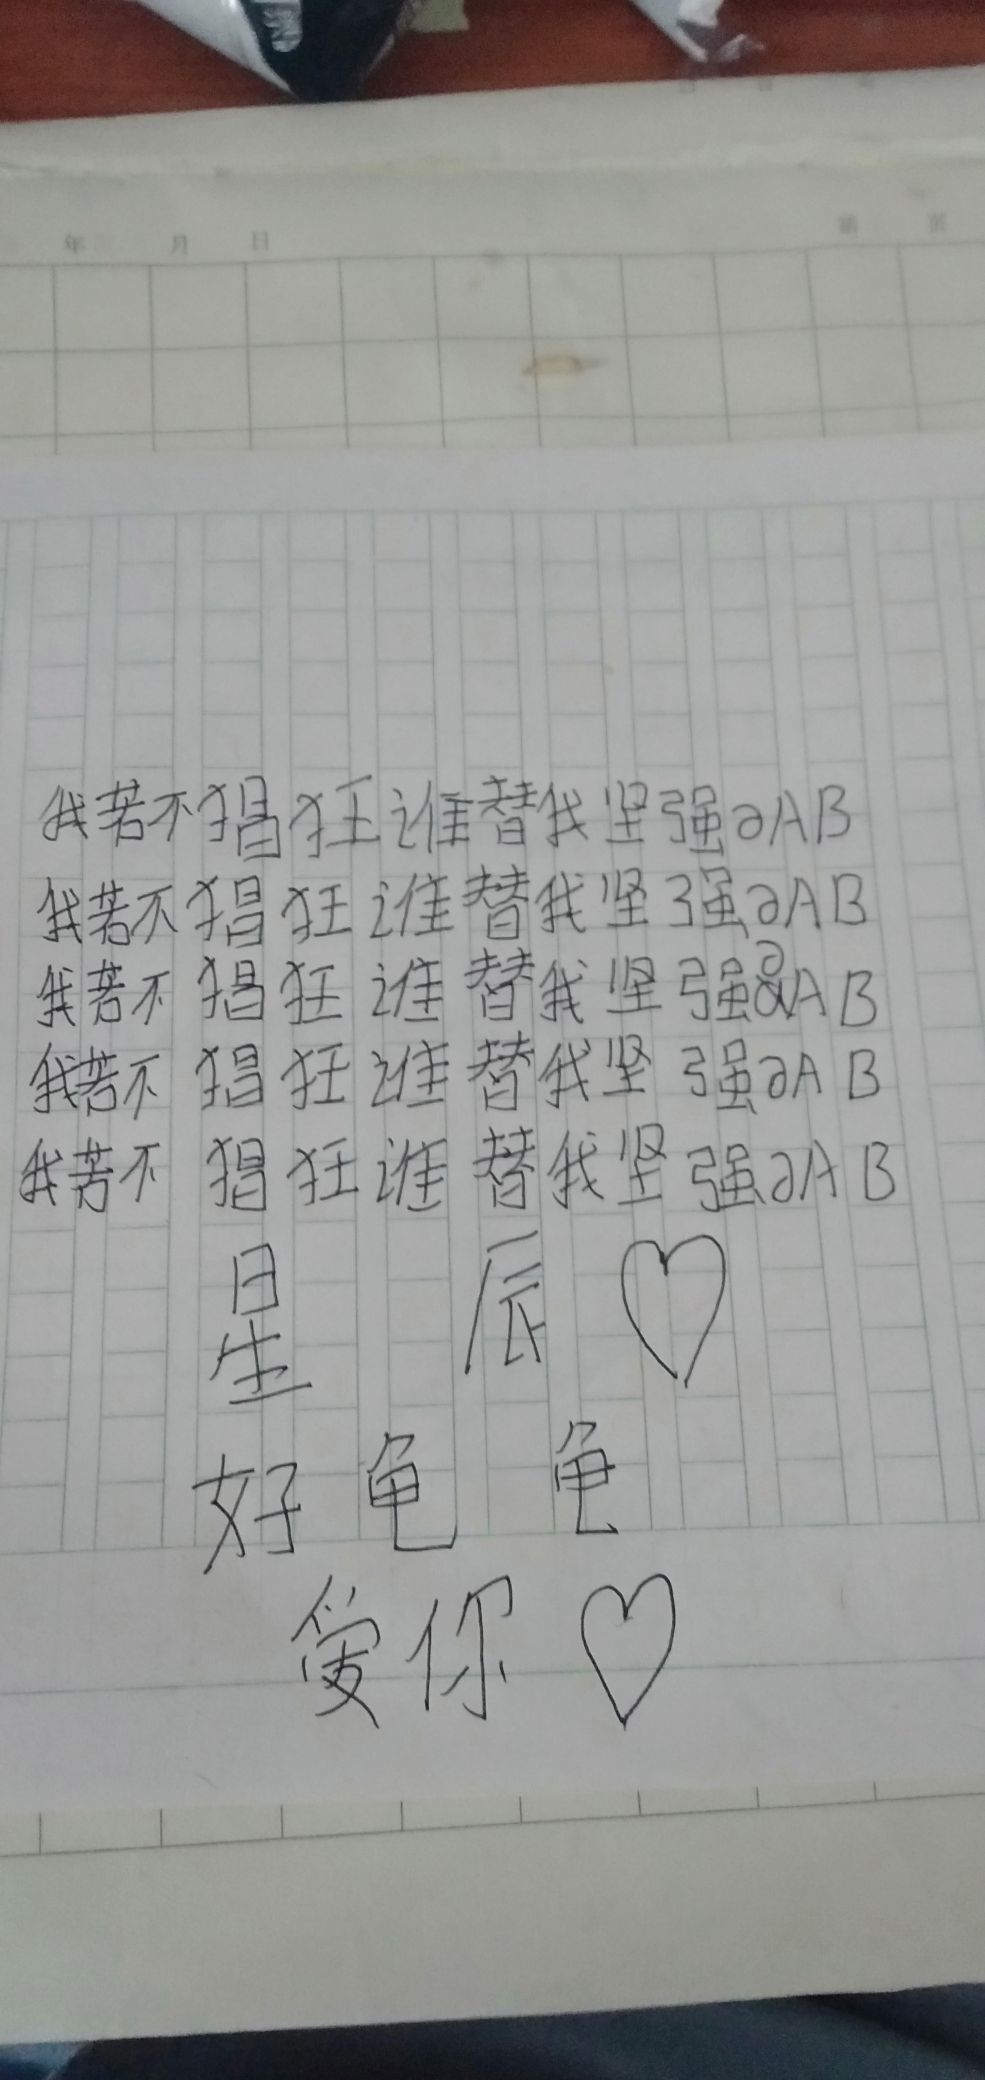 年 月 日
我若不猖狂谁替我坚强∂AB
我若不猖狂谁替我坚强∂AB
我若不猖狂谁替我坚强∂AB
我若不猖狂谁替我坚强∂AB
我若不猖狂谁替我坚强∂AB
星 辰 ♡
好龟龟
爱你 ♡